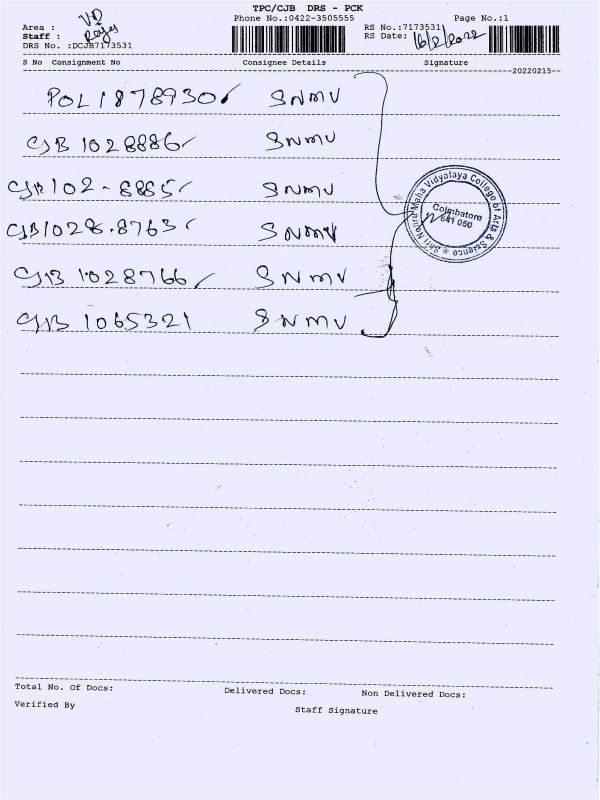 TPC/CJB DRS - PCK
Phone No.:0422-3505555
Page No.:1
Area : VD
Staff : Rajes
DRS No. :DCJB7173531
RS No.:7173531
RS Date: 16/2/2022
S No Consignment No Consignee Details Signature
20220215
POL1878930 SNMV
CJB 1028886 SNMV
CJB102-8885 SNMV
CJB1028.8763 SNMV
CJB 1028766 SNMV
CJB 1065321 SNMV
Shri Nehru Maha Vidyalaya College of Arts & Science
Coimbatore
641 050
Total No. Of Docs: Delivered Docs: Non Delivered Docs:
Verified By Staff Signature